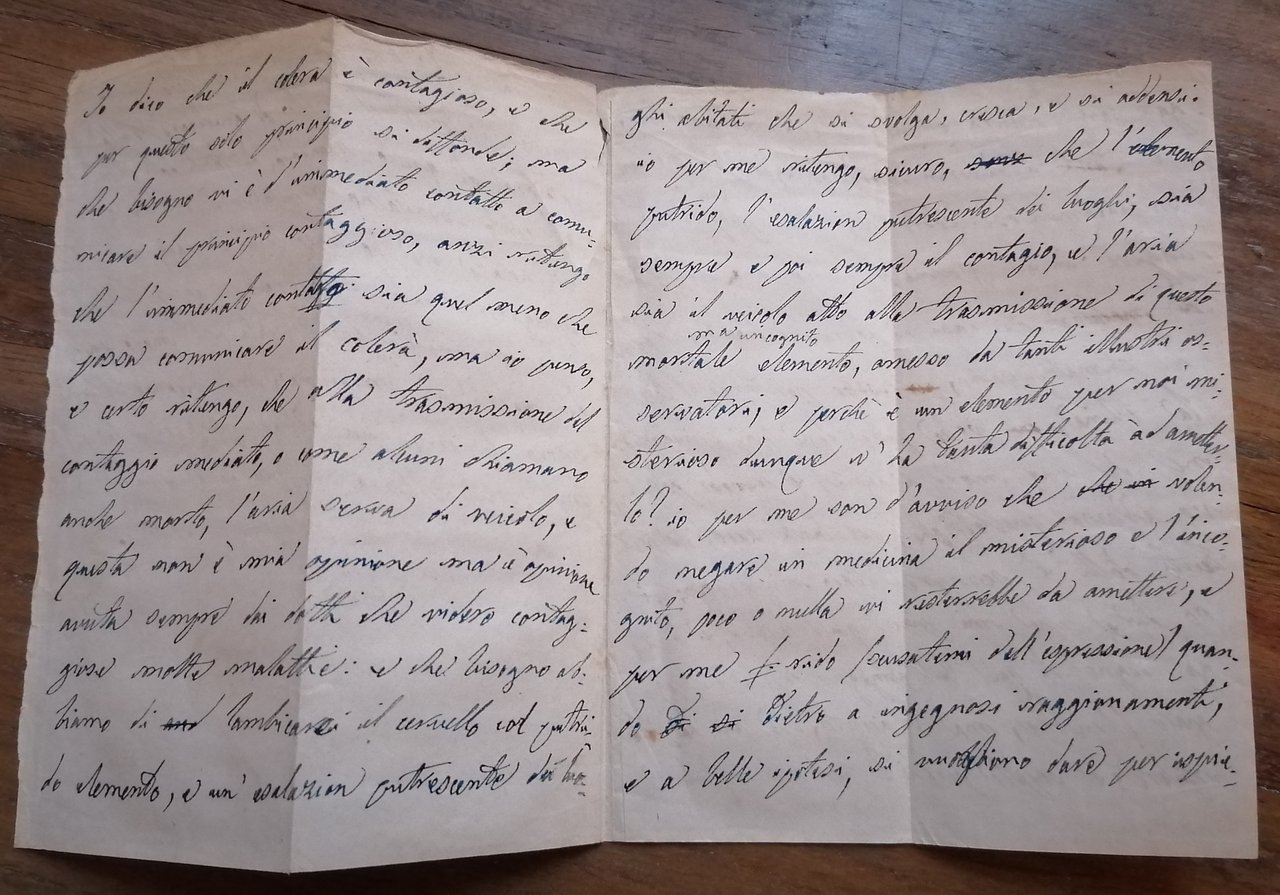 Io dico che il colera è contagioso, e che
per questo solo principio si diffonde; ma
che bisogno vi è d'immediato contatto a comu-
nicare il principio contaggioso, anzi ritengo
che l'immediato contatto sia quel meno che
possa comunicare il colerà, ma io penso,
e certo ritengo, che alla trasmissione del
contaggio mediato, o come alcuni chiamano
anche morto, l'aria serva di veicolo, e
questa non è mia opinione ma è opinione
avuta sempre dai dotti che videro contag-
giose molte malattie: e che bisogno ab-
biamo di lambicarci il cervello col putri-
do elemento, e un' esalazion putrescente dei luo-
ghi abitati che si svolga, cresca, e si addensi.
io per me ritengo, sicuro, che l'elemento
putrido, l'esalazion putrescente dei luoghi, sia
sempre e poi sempre il contagio, e l'aria
sia il veicolo atto alla trasmissione di questo
ma incognito
mortale elemento, amesso da tanti illustri os-
servatori, e perchè è un elemento per noi mi-
sterioso dunque v'ha tanta difficoltà ad amotter-
lo? io per me son d'avviso che che in volen-
do negare in medicina il misterioso e l'inco-
gnito, poco o nulla vi resterebbe da amettere, e
per me rido (scusatemi dell'espressione) quan-
do Di si Dietro a ingegnosi raggionamenti,
e a belle ipotesi, si vogliono dare per ispie-